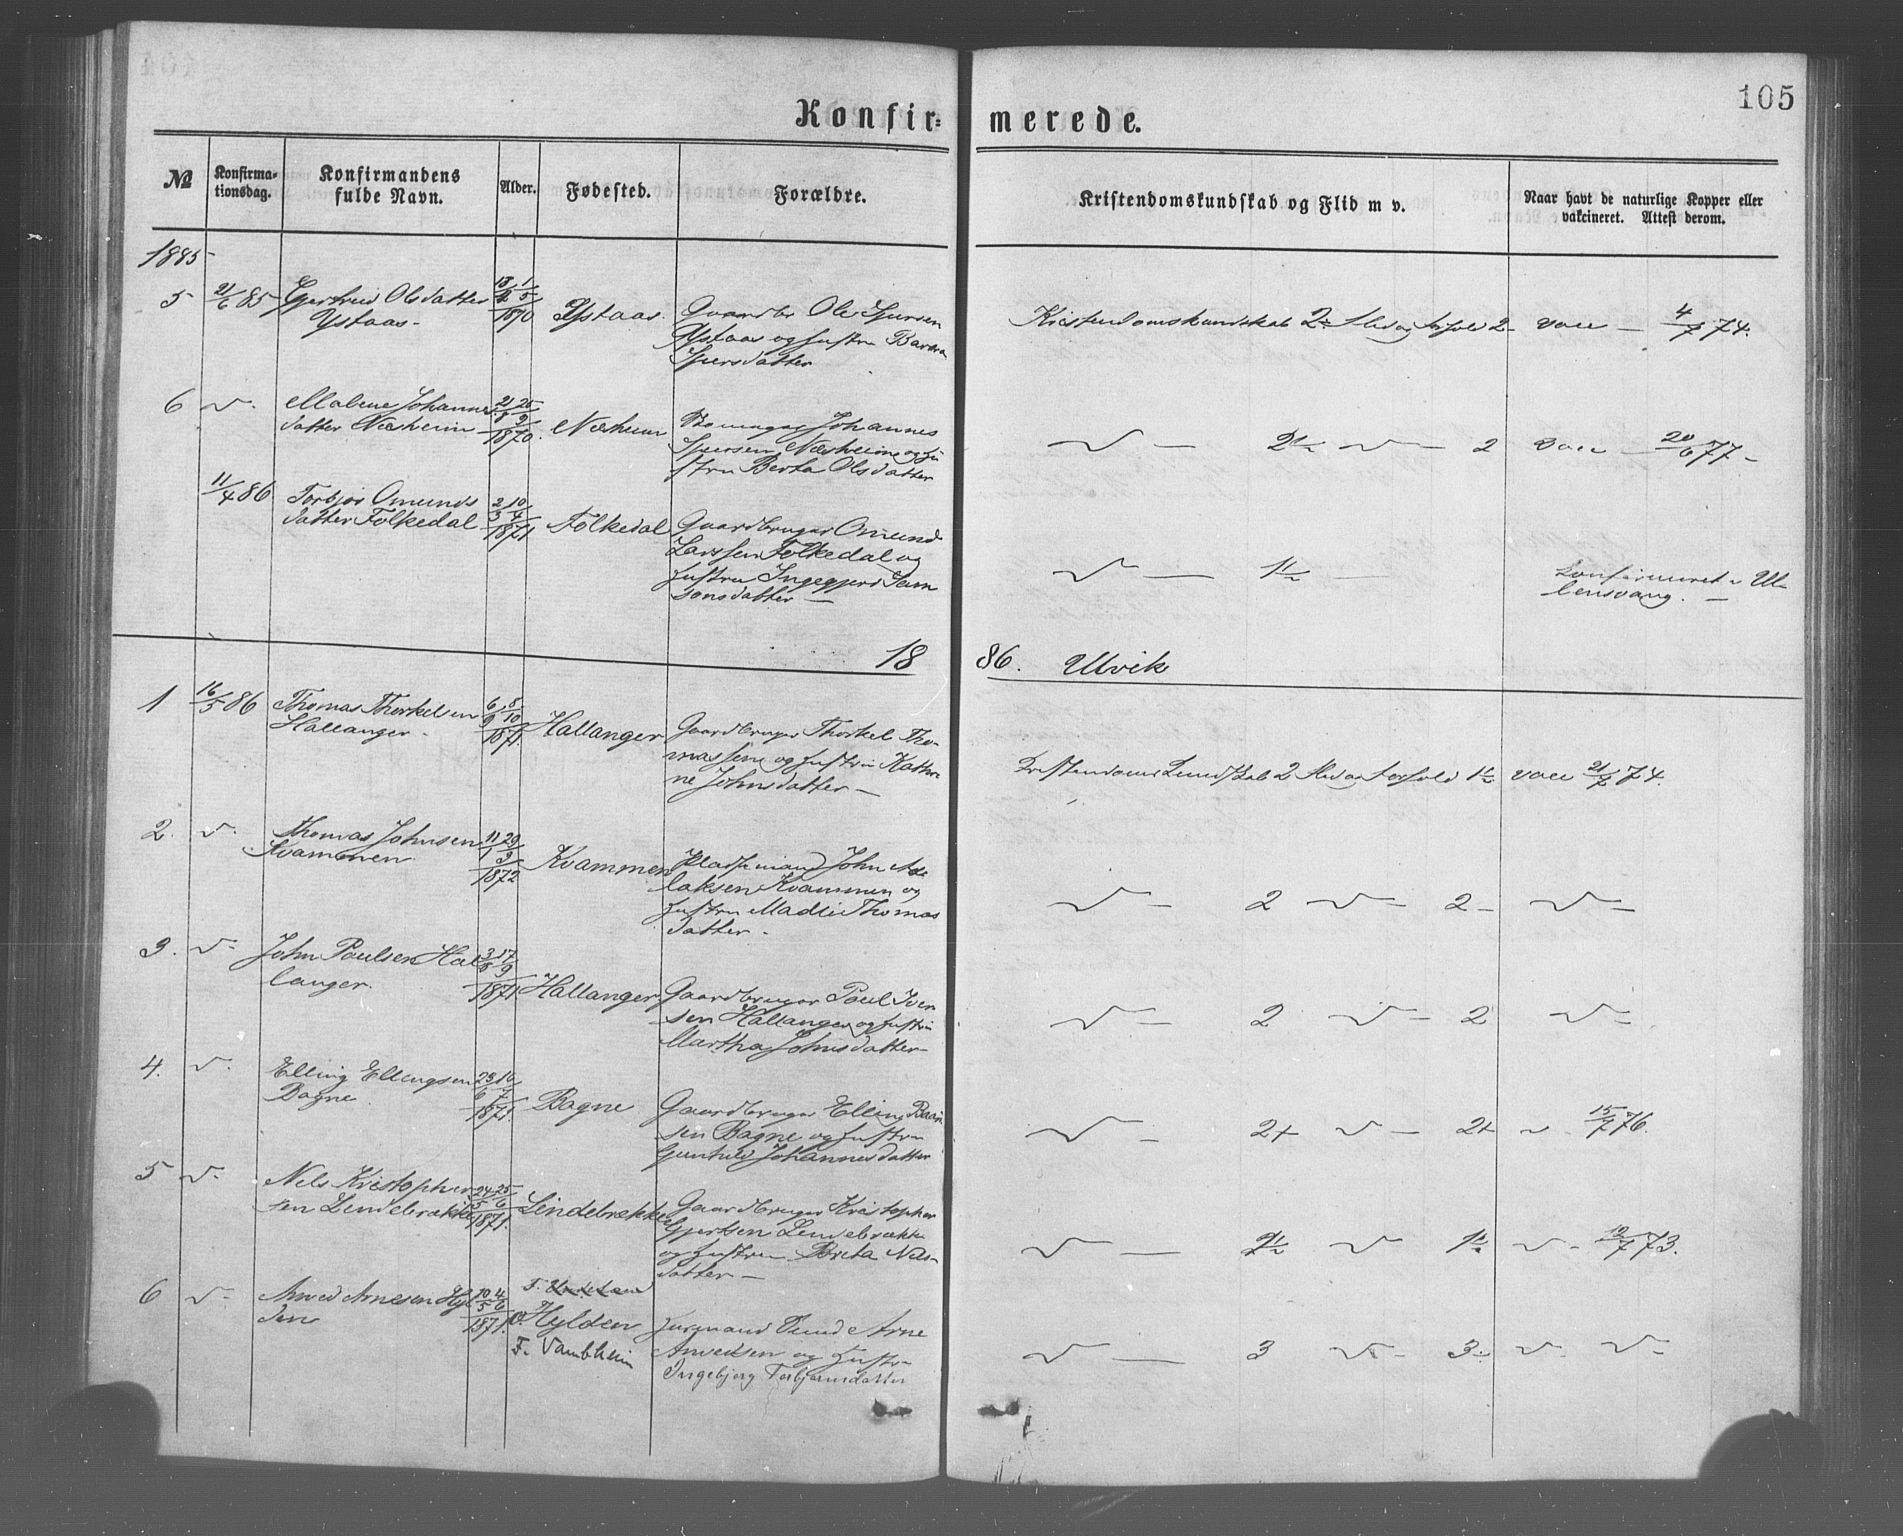 105
Konfir= merede.
№ Konfirma-
tionsdag. Konfirmandens
fulde Navn. Alder. Fødested. Forældre. Kristendomskundskab og Flid m v. Naar havt de naturlige Kopper eller
vakcineret. Attest derom.
1885
5 21/6 85 Gjertrud Olsdatter
Ystaas 1/5 1870 Ystaas. Gaardbr Ole Sjursen
Ystaas og hustru Barbra
Sjursdatter
Kristendomskundskab 2 Flid og Forhold 2 vacc 4/7 74.
6 v. Malene Johannes
datter Næsheim 21/8 25/9 1870. Næsheim Johannes
Sjursen Næsheim og hu
stru Berta Olsdatter
v — 2 1/2 v — 2 vacc — 20/6 77 —
11/4 86 Torbjør Omunds
datter Folkedal 2/3 10/4 1871 Folkedal Gaardbruger Omund
Larssen Folkedal og
hustru Ingegjerd Sam
sonsdatter —
v — 1 1/2 — konfirmeret i Ul
lensvang. —
18 86. Ulvik
1 16/5 86 Thomas Thorkelsen
Hallanger 6/9 8/10 1871. Hallanger Gaardbruger Thorkel Tho-
massen og hustru Kathri
ne Johnsdatter —
Kristendomskundskab 2 Flid og Forhold 1 1/2 vacc 21/7 74.
2. v. Thomas Johnsen
Kvammen 11/1 29/3 1872 Kvammen Pladsemand John As
laksen Kvammen og
hustru Madli Thomas
datter.
v — 2 v — 2 — v —
3. v. John Paulsen Hal
langer. 3/8 17/9 1871 Hallanger Gaardbruger Paul Iver
sen Hallanger og hustru
Martha Johnsdatter
v — 2 v — 2 v —
4. v. Elling Ellingsen
Bagne 23/6 16/7 1871. Bagne Gaardbruger Elling Baar
sen Bagne og hustru
Gunhild Johannesdatter
v — 2+ v — 2+ v 15/7 76.
5 v. Nels Kristopher
sen Lindebrække 24/5 25/6 1871. Lindebrække Gaardbruger Kristopher
Gjertsen Lindebrække
og hustru Brita Nils-
datter —
v — v 1 1/2 v — 12/7 73.
6 v. Anved Arnesen Hyl
den 10/5 4/6 1871. F.
O. Hylden
F. Vambheim Arne
Anvedsen og hustru
Ingebjørg Torbjørnsdatter
v — 3 v — 3 v. v —